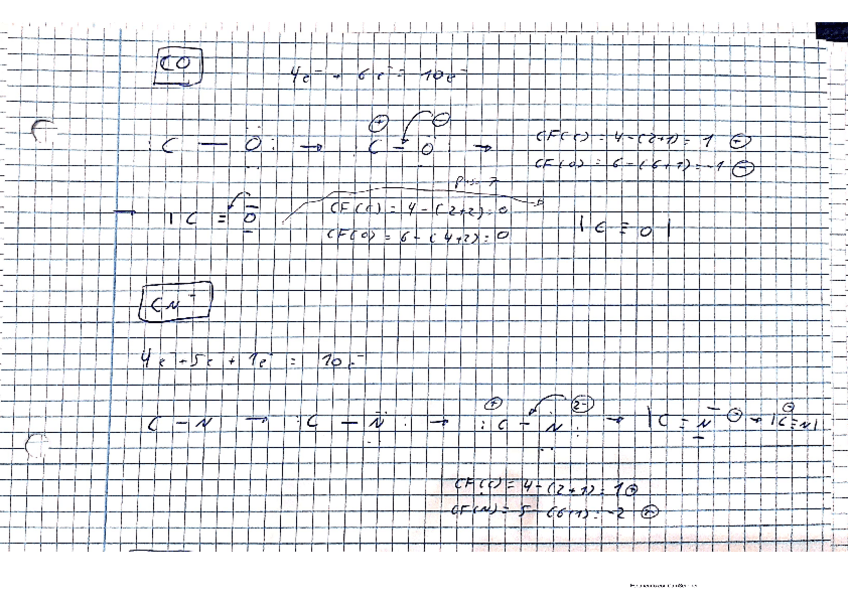 CO
4e⁻ + 6e⁻ = 10e⁻
C — O: → C – O → CF(C) = 4-(2+1) = 1 ⊕
CF(O) = 6-(6+1) = -1 ⊖
→ |C = O
CF(C) = 4-(2+2) = 0
CF(O) = 6-(4+2) = 0
|C ≡ O|
CN⁻
4e⁻ + 5e + 1e⁻ = 10e⁻
C – N → :C – N: → :C – N: → |C = N ⊖ → |C≡N|
CF(C) = 4-(2+1) = 1 ⊕
CF(N) = 5-(6+1) = -2